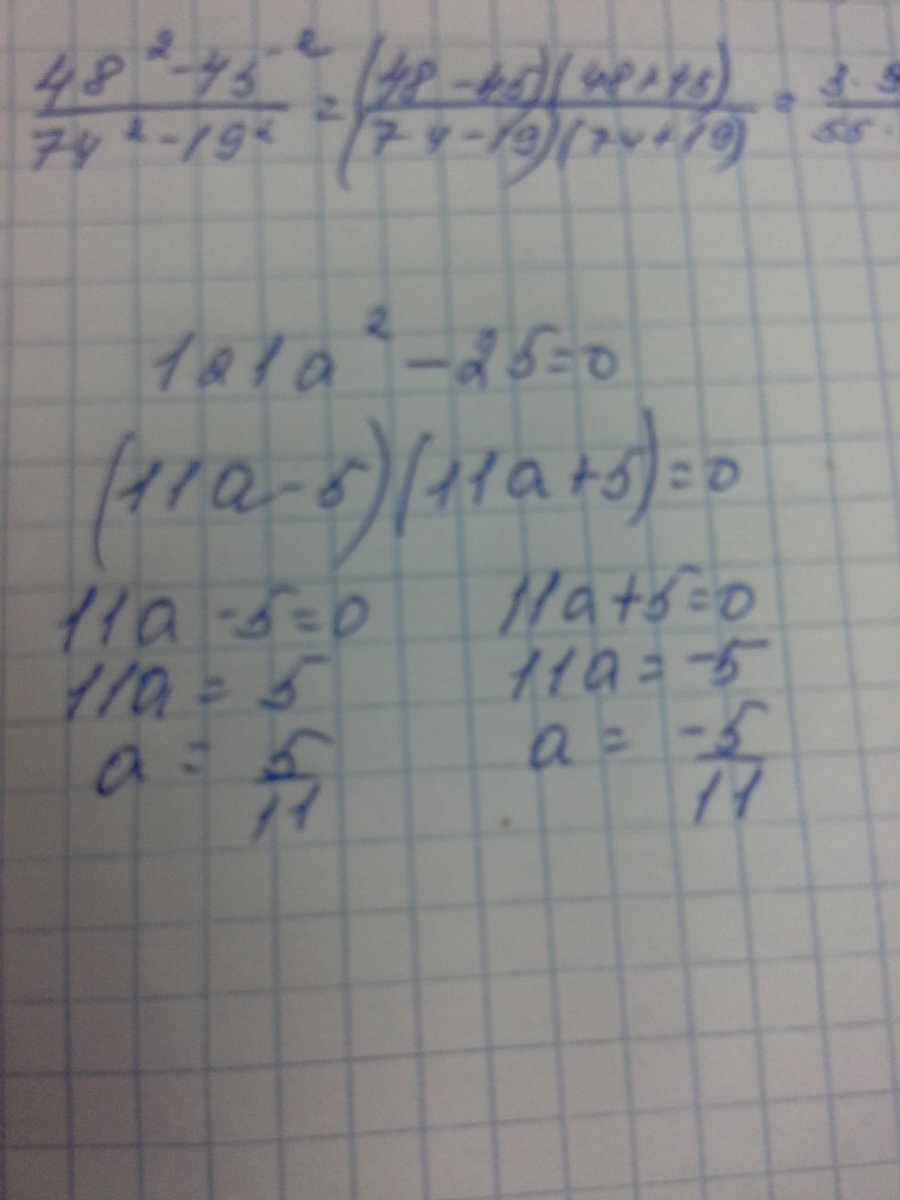 48² - 45⁻² / 74² - 19² = (48 - 45)(48 + 45) / (74 - 19)(74 + 19) = 3 · / 55 ·
121a² - 25 = 0
(11a - 5)(11a + 5) = 0
11a - 5 = 0 11a + 5 = 0
11a = 5 11a = -5
a = 5/11 a = -5/11